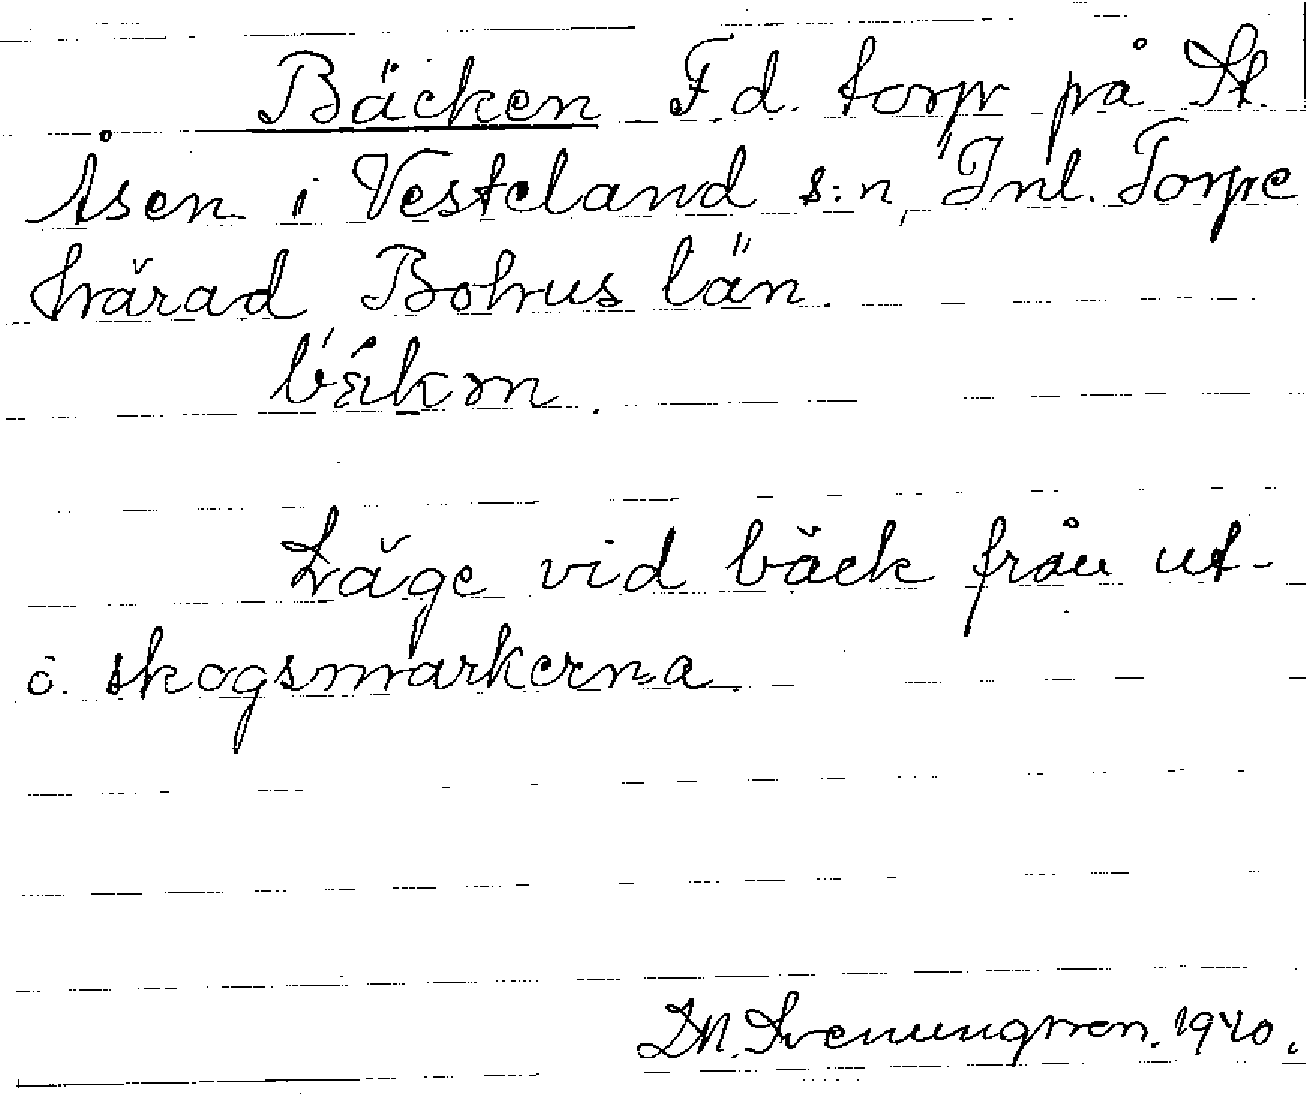 Bäcken F.d. torp på St.
Åsen i Vesteland s:n, Inl. Torpe
härad Bohus län.
Läge vid bäck från ut-
o. skogsmarkerna.
Svenungsson. 1940.